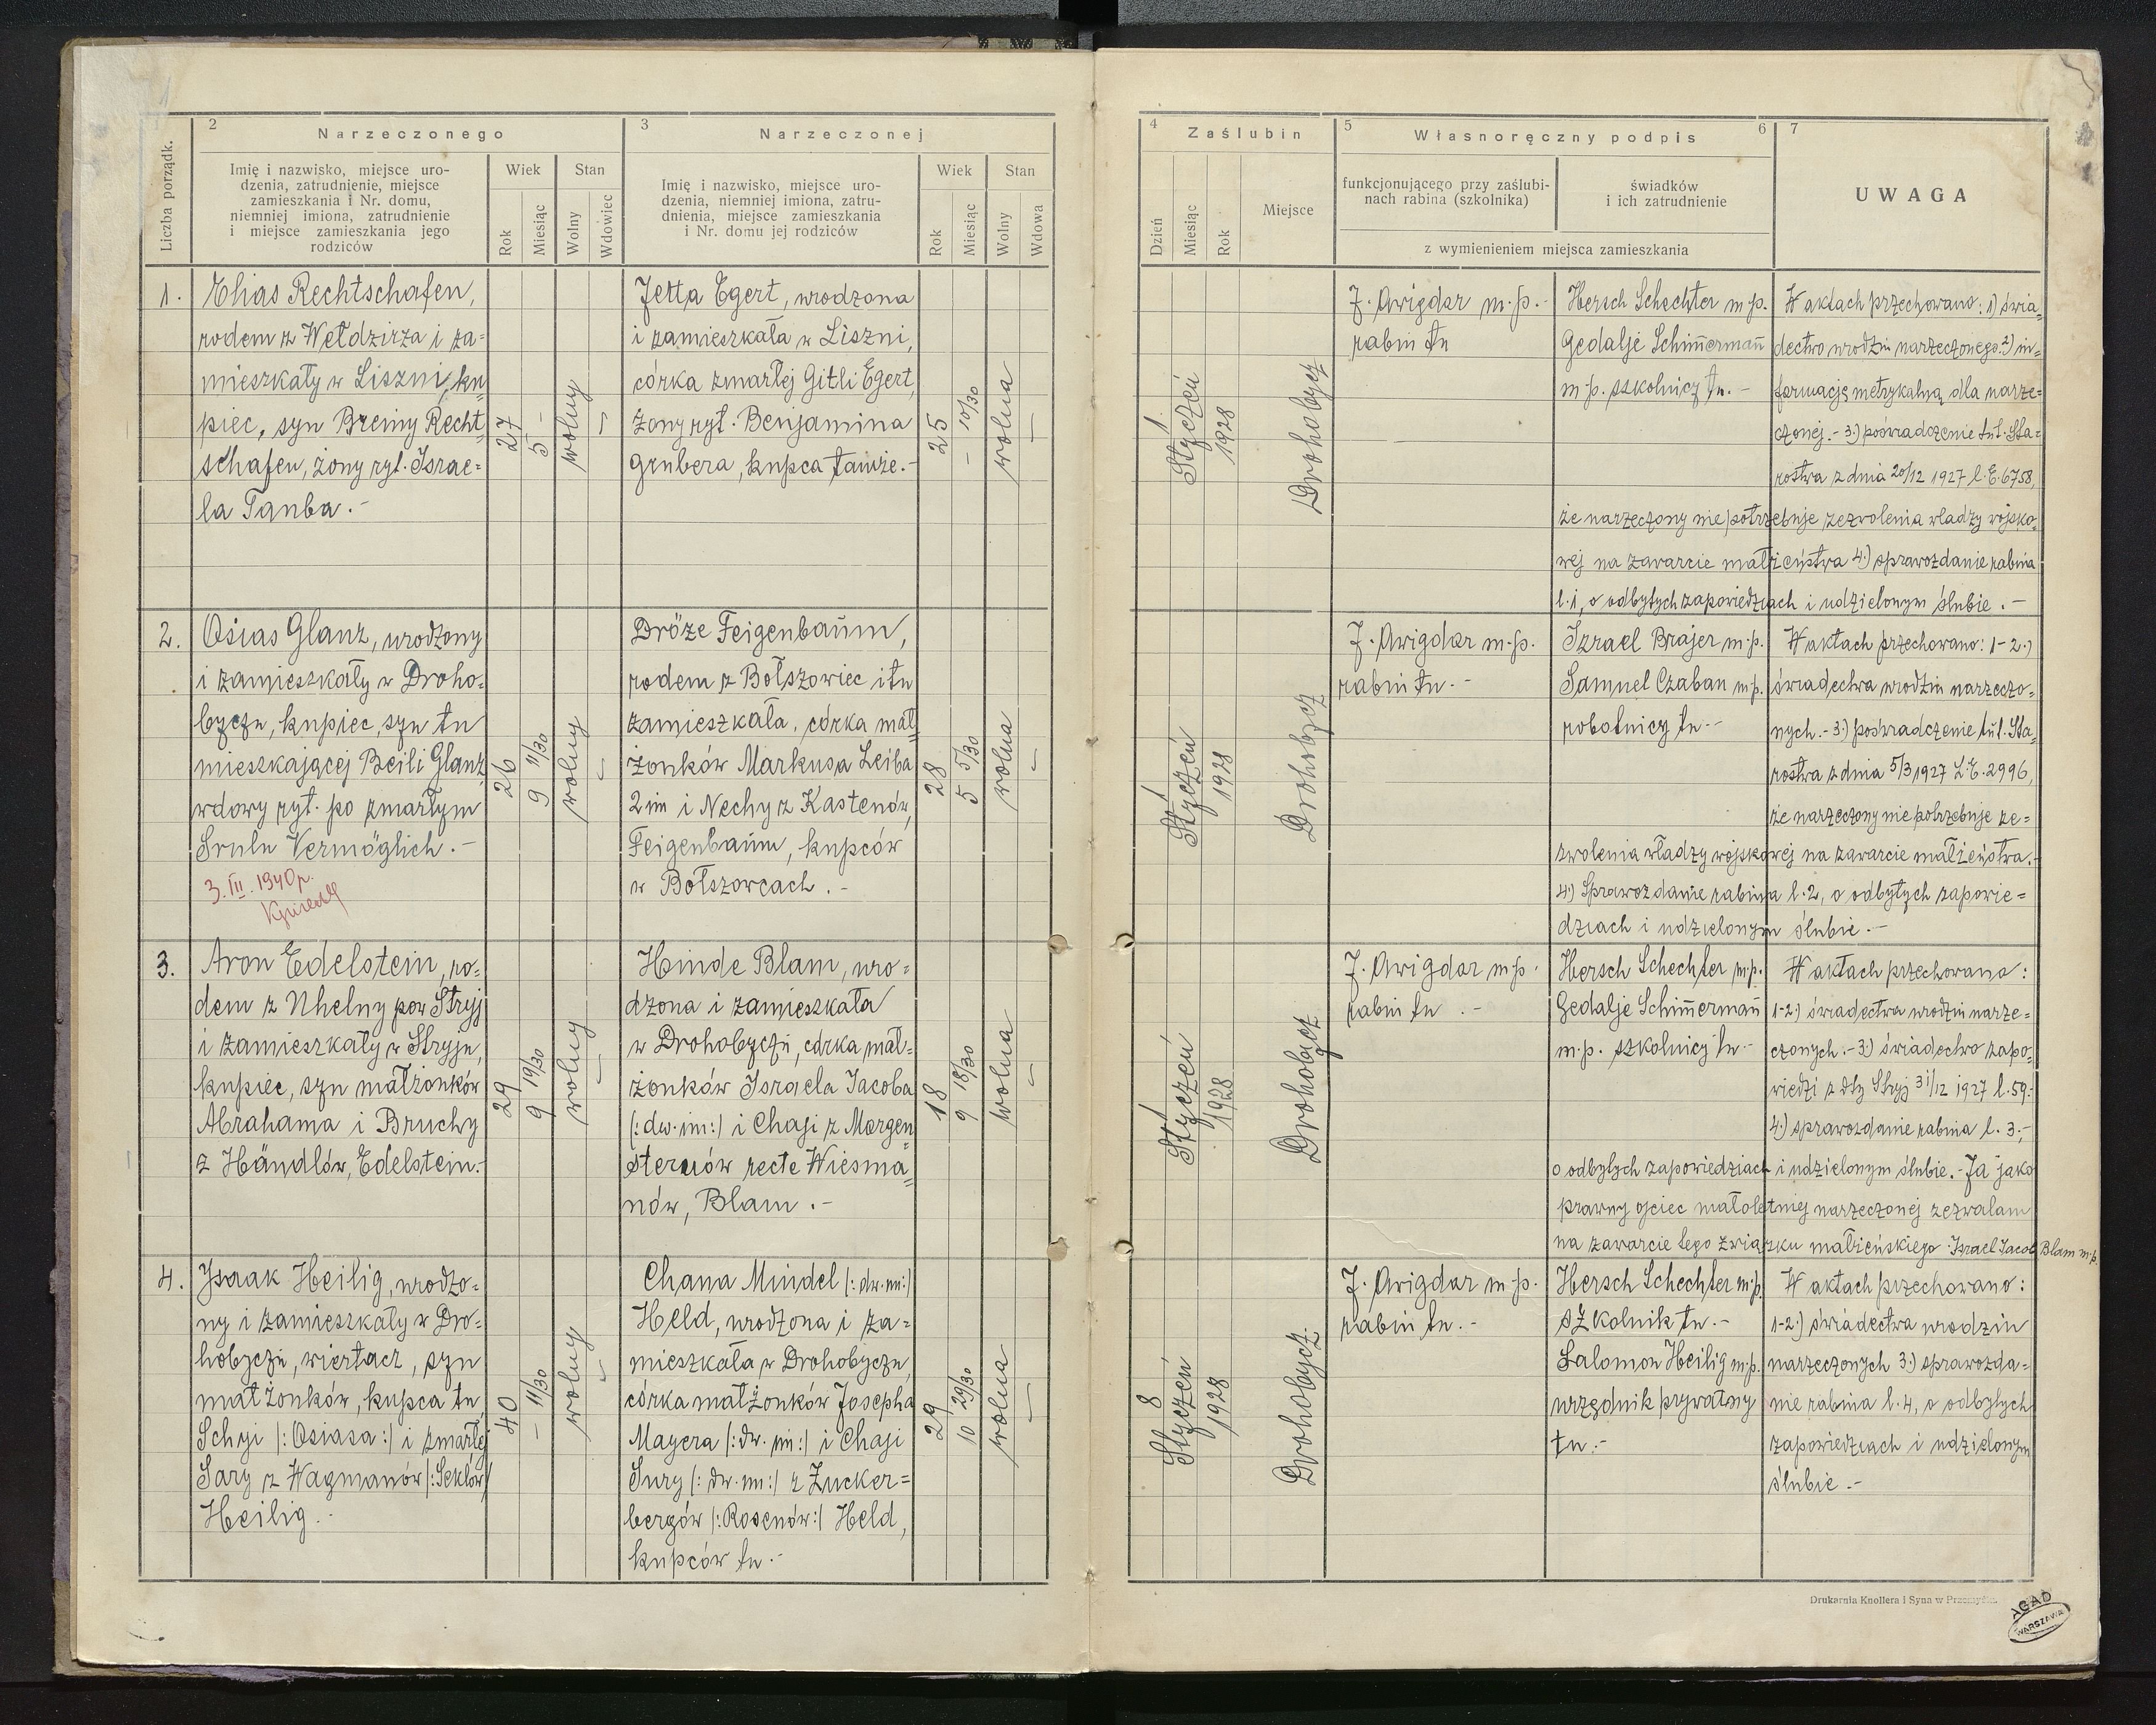 Liczba porządk.
2
Narzeczonego
Imię i nazwisko, miejsce uro-
dzenia, zatrudnienie, miejsce
zamieszkania i Nr. domu,
niemniej imiona, zatrudnienie
i miejsce zamieszkania jego
rodziców
Wiek
Rok
Miesiąc
Stan
Wolny
Wdowiec
3
Narzeczonej
Imię i nazwisko, miejsce uro-
dzenia, niemniej imiona, zatru-
dnienia, miejsce zamieszkania
i Nr. domu jej rodziców
Wiek
Rok
Miesiąc
Stan
Wolny
Wdowa
4
Zaślubin
Dzień
Miesiąc
Rok
Miejsce
5
Własnoręczny podpis
6
funkcjonującego przy zaślubi-
nach rabina (szkolnika)
świadków
i ich zatrudnienie
z wymienieniem miejsca zamieszkania
7
UWAGA
1.
Elias Rechtschafen,
rodem z Wełdzirza i za=
mieszkały w Liszni, ku
piec, syn Breiny Recht=
schafen, żony ryt. Israe=
la Tauba.-
27
5 -
wolny
Jetta Egert, urodzona
i zamieszkała w Liszni,
córka zmarłej Gitli Egert,
żony ryt. Benjamina
Grubera, kupca tamże.-
25
- 10/30
wolna
1
Styczeń
1928
Drohobycz
J. Awigdor m.p.-
rabin tu
Hersch Schechter m.p.
Gedalje Schim̄erman̄
m.p. szkolnicy tu.-
W aktach przechowano: 1) świa=
dectwo urodzin narzeczonego. 2) in=
formację metrykalną dla narze=
czonej.- 3.) poświadczenie tut. Sta=
rostwa z dnia 20/12 1927 l. E. 6758,
że narzeczony nie potrzebuje zezwolenia władzy wojsko=
wej na zawarcie małżeństwa 4.) sprawozdanie rabina
l. 1, o odbytych zapowiedziach i udzielonym ślubie.-
2.
Osias Glanz, urodzony
i zamieszkały w Droho=
byczu, kupiec, syn tu
mieszkającej Beili Glanz,
wdowy ryt. po zmarłym
Srulu Vermöglich.-
3. III. 1940 r.
26
9 11/30
wolny
Dröze Feigenbaum,
rodem z Bołszowiec i tu
zamieszkała, córka mał=
żonków Markusa Leiba
2 im i Nechy z Kastenów,
Feigenbaum, kupców
w Bołszowcach.-
28
5 5/30
wolna
1
Styczeń
1928
Drohobycz
J. Awigdor m.p.
rabin tu.-
Izrael Brajer m.p.
Samuel Czaban m.p.
robotnicy tu.-
W aktach przechowano: 1-2.)
świadectwa urodzin narzeczo=
nych.- 3.) poświadczenie tut. Sta=
rostwa z dnia 5/3 1927 L. E. 2996,
że narzeczony nie potrzebuje ze=
zwolenia władzy wojskowej na zawarcie małżeństwa.-
4.) Sprawozdanie rabina l. 2, o odbytych zapowie=
dziach i udzielonym ślubie.-
3.
Aron Edelstein, ro=
dem z Uhelny pow Stryj
i zamieszkały w Stryju,
kupiec, syn małżonków
Abrahama i Bruchy
z Händlów, Edelstein.-
29
9 19/30
wolny
Hinde Blam, uro=
dzona i zamieszkała
w Drohobyczu, córka mał=
żonków Israela Jacoba
(: dw. im:) i Chaji z Morgen
sternów recte Wiesma=
nów, Blam.-
18
9 18/30
wolna
1
Styczeń
1928
Drohobycz
J. Awigdor m.p.
rabin tu.-
Hersch Schechter m.p.
Gedalje Schim̄erman̄
m.p. szkolnicy tu.-
W aktach przechowano:
1-2.) świadectwa urodzin narze=
czonych.- 3.) świadectwo zapo=
wiedzi z dty Stryj 31/12 1927 l. 59.-
4.) sprawozdanie rabina l. 3.-
o odbytych zapowiedziach i udzielonym ślubie.- Ja jako
prawny ojciec małoletniej narzeczonej zezwalam
na zawarcie tego związku małżeńskiego. Izrael Jacob Blam m.p.
4.
Isaak Heilig, urodzo=
ny i zamieszkały w Dro=
hobyczu, wiertacz, syn
małżonków, kupca tu
Schyi (: Osiasa:) i zmarłej
Sary z Wagmanów (: Seklów:)
Heilig.-
40
- 11/30
wolny
Chana Mindel (: dw. im:)
Held, urodzona i za=
mieszkała w Drohobyczu,
córka małżonków Josepha
Mayera (: dw. im:) i Chaji
Sury (: dw. im:) z Zucker=
bergów (: Rosenów:) Held,
kupców tu.-
29
10 29/30
wolna
8
Styczeń
1928
Drohobycz.
J. Awigdor m.p.
rabin tu.-
Hersch Schechter m.p.
szkolnik tu.-
Salomon Heilig m.p.
urzędnik prywatny
tu.-
W aktach przechowano:
1-2.) świadectwa urodzin
narzeczonych 3.) sprawozda=
nie rabina l. 4, o odbytych
zapowiedziach i udzielonym
ślubie.-
Drukarnia Knollera i Syna w Przemyślu.
AGAD
WARSZAWA